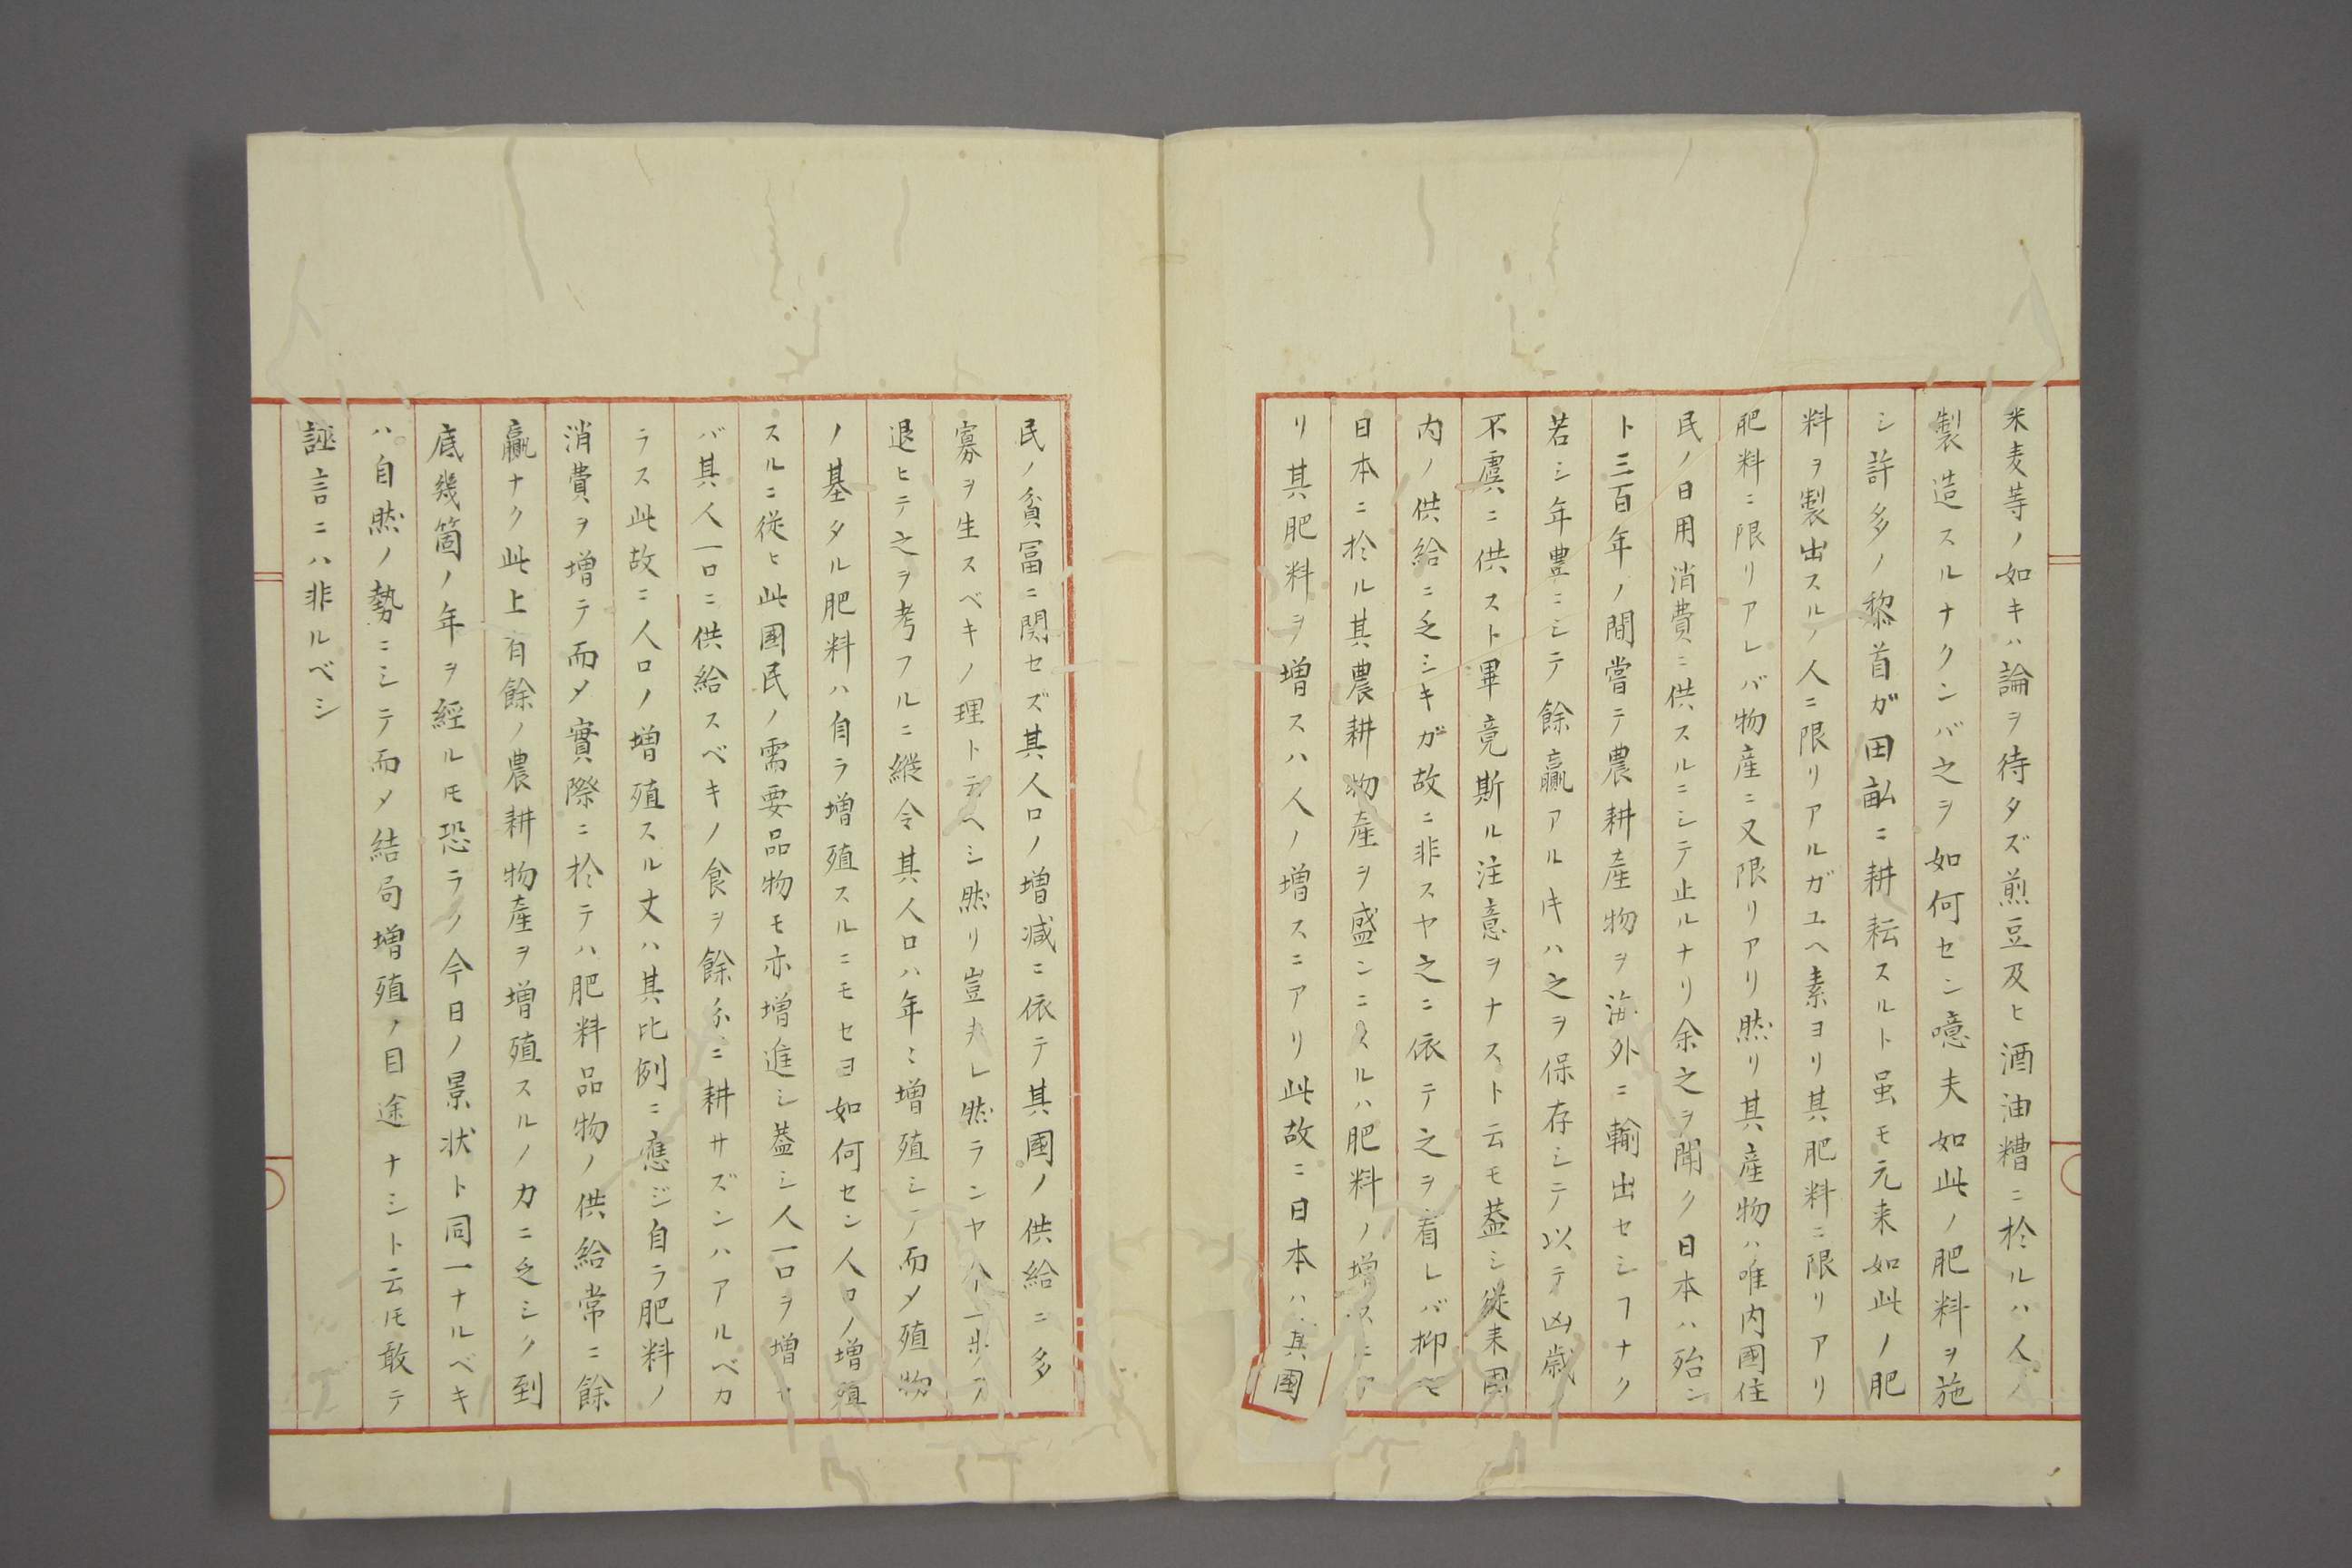 米麦等ノ如キハ論ヲ待タズ煎豆及ヒ酒油糟ニ於ルハ人ノ
製造スルナクンバ之ヲ如何セン噫夫如此ノ肥料ヲ施
シ許多ノ黎首ガ田畆ニ耕耘スルト虽モ元来如此ノ肥
料ヲ製出スルノ人ニ限リアルガユヘ素ヨリ其肥料ニ限リアリ
肥料ニ限リアレバ物産ニ又限リアリ然リ其産物ハ唯内國住
民ノ日用消費ニ供スルニシテ止ルナリ余之ヲ聞ク日本ハ殆ン
ト三百年ノ間嘗テ農耕産物ヲ海外ニ輸出セシヿナク
若シ年豊ニシテ餘贏アルキハ之ヲ保存シテ以テ凶歳
不虞ニ供スト畢竟斯ル注意ヲナスト云モ葢シ従来國
内ノ供給ニ乏シキガ故ニ非スヤ之ニ依テ之ヲ看レバ抑モ
日本ニ於ル其農耕物産ヲ盛ンニスルハ肥料ノ増スニア
リ其肥料ヲ増スハ人ノ増スニアリ此故ニ日本ハ其國
民ノ貧冨ニ関セズ其人口ノ増減ニ依テ其國ノ供給ニ多
寡ヲ生スベキノ理トラヘシ然リ豈夫レ然ランヤ
退ヒテ之ヲ考フルニ縦令其人口ハ年ミ増殖シテ而メ殖物
ノ基タル肥料ハ自ラ増殖スルニモセヨ如何セン人口ノ増殖
スルニ従ヒ此國民ノ需要品物モ亦増進シ葢シ人一口ヲ増セ
バ其人一口ニ供給スベキノ食ヲ餘分ニ耕サズンハアルベカ
ラス此故ニ人口ノ増殖スル丈ハ其比例ニ應ジ自ラ肥料ノ
消費ヲ増テ而メ實際ニ於テハ肥料品物ノ供給常ニ餘
贏ナク此上有餘ノ農耕物産ヲ増殖スルノ力ニ乏シク到
底幾箇ノ年ヲ經ルモ恐ラク今日ノ景状ト同一ナルベキ
ハ自然ノ勢ニシテ而メ結局増殖ノ目途ナシト云モ敢テ
誣言ニハ非ルベシ